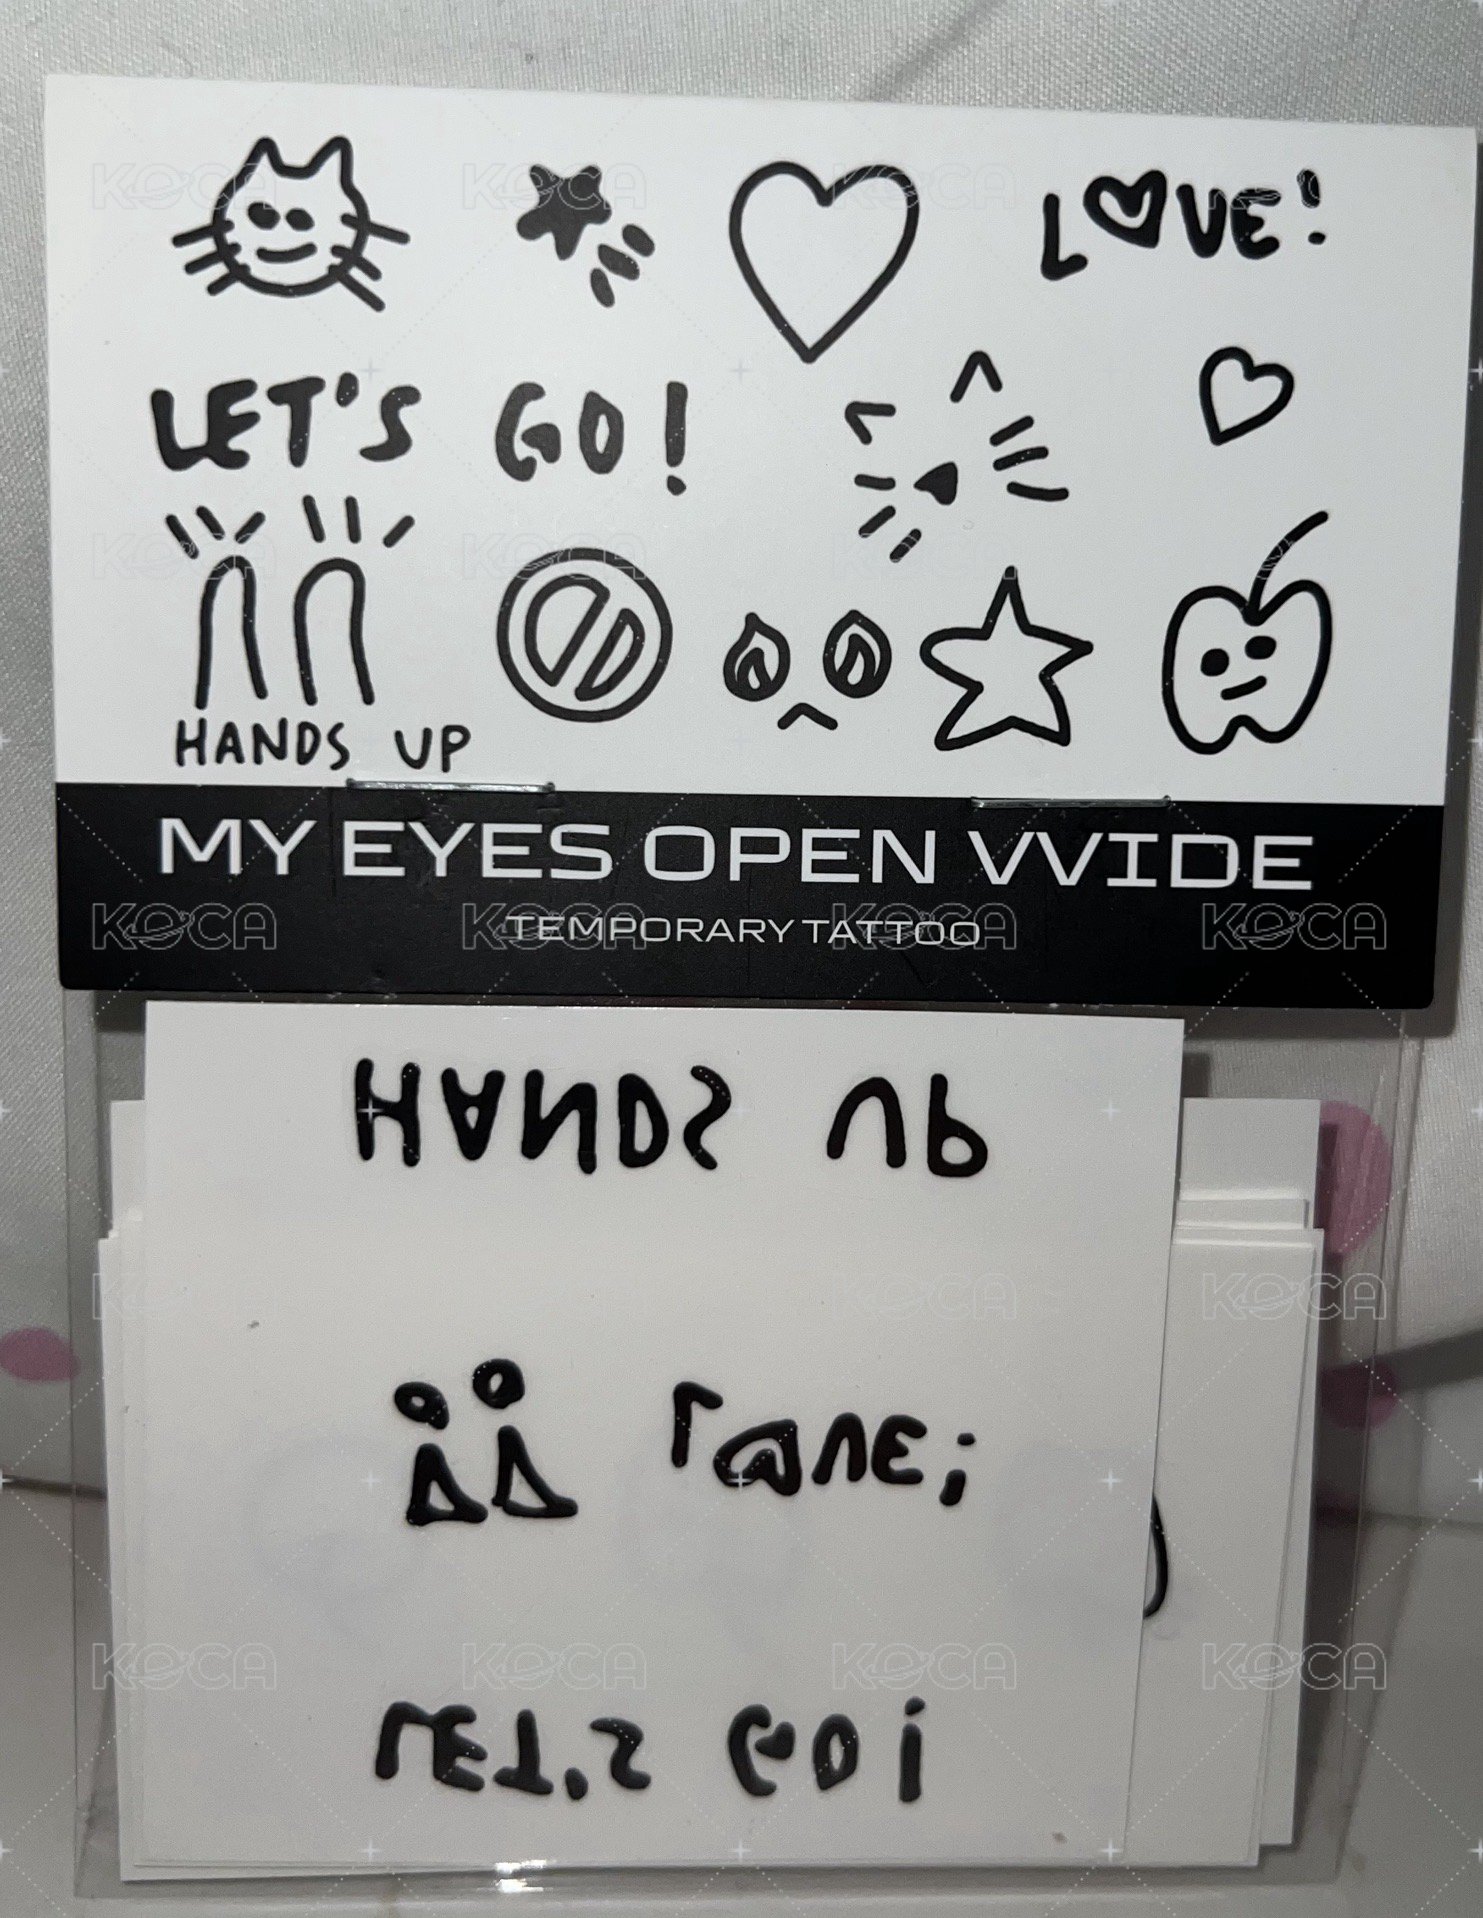 LOVE!
LET'S GO!
HANDS UP
MY EYES OPEN VVIDE
TEMPORARY TATTOO
KOCA KOCA KOCA KOCA
HANDS UP
!! LOVE!
LET'S GO!